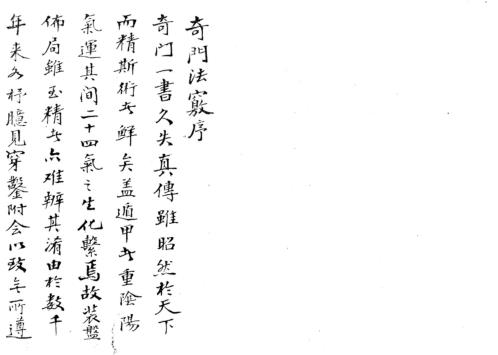 奇門法竅序
奇门一書久失真傳雖昭然於天下
而精斯術者鮮矣盖遁甲者重陰陽
氣運其间二十四氣之生化繫焉故装盤
佈局雖至精者亦难辨其淆由於数千
年来各抒臆見穿鑿附会以致無所遵